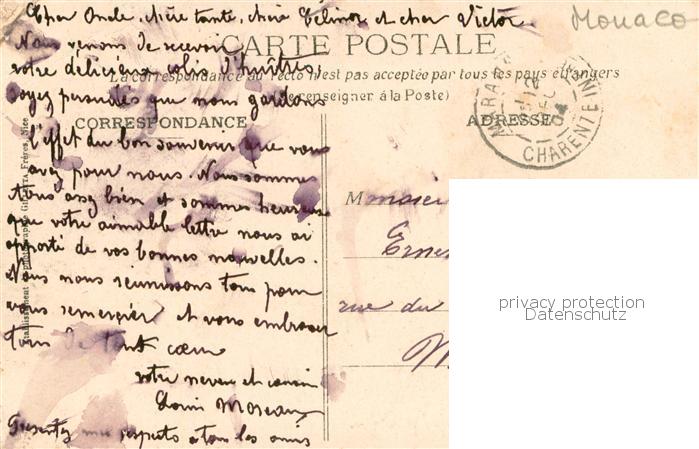 Cher Oncle, chère tante, chère Célina et cher Victor
Monaco
Nous venons de recevoir
CARTE POSTALE
votre délicieux colis d'huîtres,
La correspondance au recto n'est pas acceptée par tous les pays étrangers
soyez persuadés que nous gardons
(Se renseigner à la Poste)
CORRESPONDANCE
ADRESSE
MARANS
CHARENTE INF
l'effet du bon souvenir que vous
avez pour nous. Nous sommes
tous assez bien et sommes heureux
que votre aimable lettre nous ai
apporté de vos bonnes nouvelles.
Nous nous réunissons tous pour
vous remercier et vous embrasser
tous de tout cœur
votre neveu et cousin
Louis Moreau
Présentez mes respects à tous les amis
Frères, Nice
Monsieur
Ernes
rue du
M
privacy protection
Datenschutz